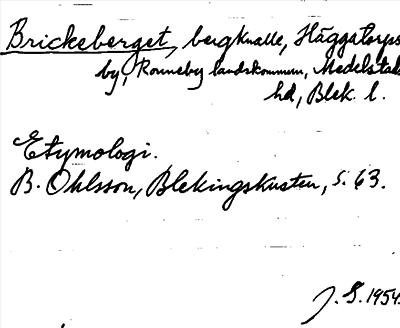 Brickeberget, bergknalle, Häggatorps
by, Ronneby landskommun, Medelstads
hd, Blek. l.
Etymologi.
B. Ohlsson, Blekingskusten, s. 63.
J. S. 1954.